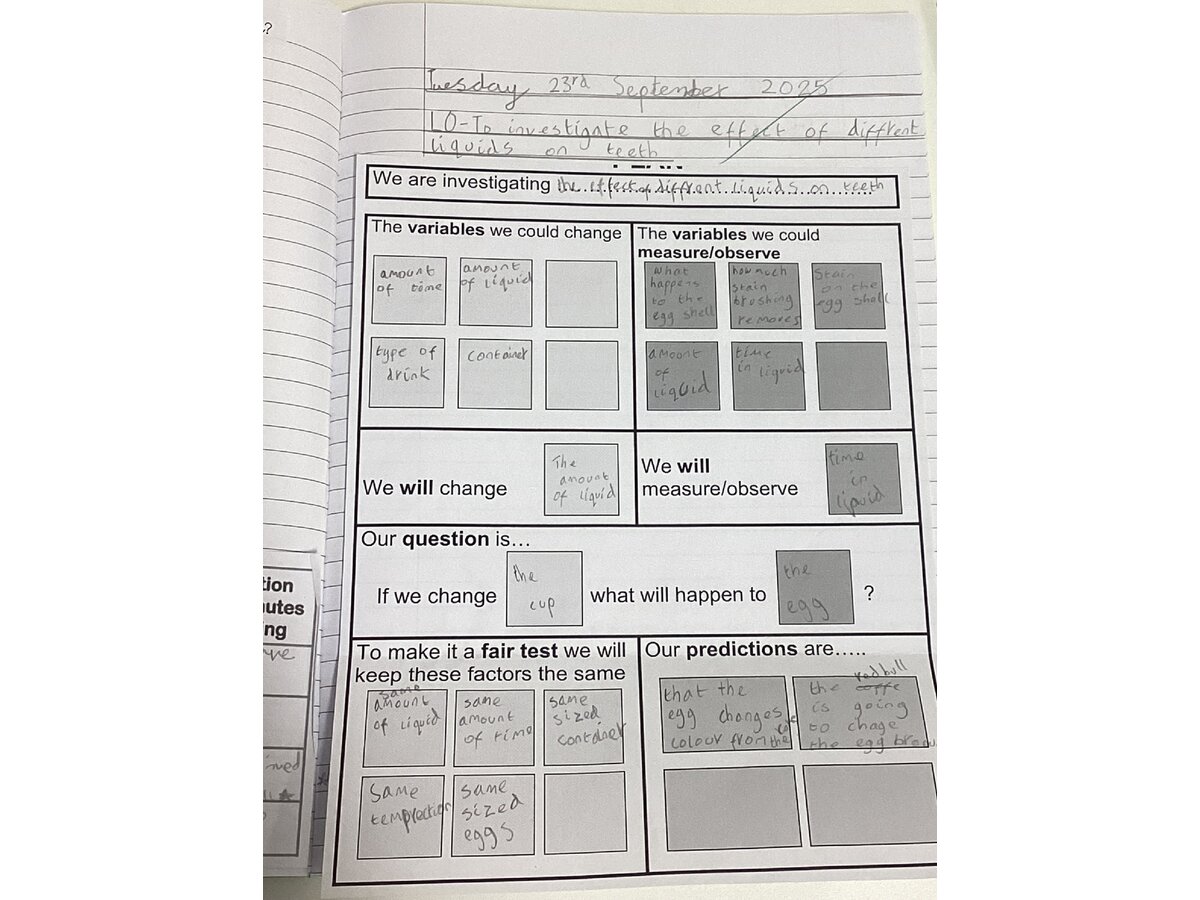 ?
Tuesday 23rd September 2025
LO-To investigate the effect of diffrent
liquids on teeth
We are investigating the effect of diffrent liquids on teeth
The variables we could change
amount
of time
amount
of liquid
type of
drink
container
The variables we could
measure/observe
what
happens
to the
egg shell
how much
stain
brushing
removes
Stain
on the
egg shell
amount
of
liquid
time
in liquid
We will change
The
amount
of liquid
We will
measure/observe
time
in
liquid
Our question is...
If we change
the
cup
what will happen to
the
egg
?
To make it a fair test we will
keep these factors the same
same
amount
of liquid
same
amount
of time
same
sized
container
Same
same
sized
eggs
Our predictions are.....
that the
egg changes
colour from the
redbull
the
is going
to chage
the egg
tion
utes
ng